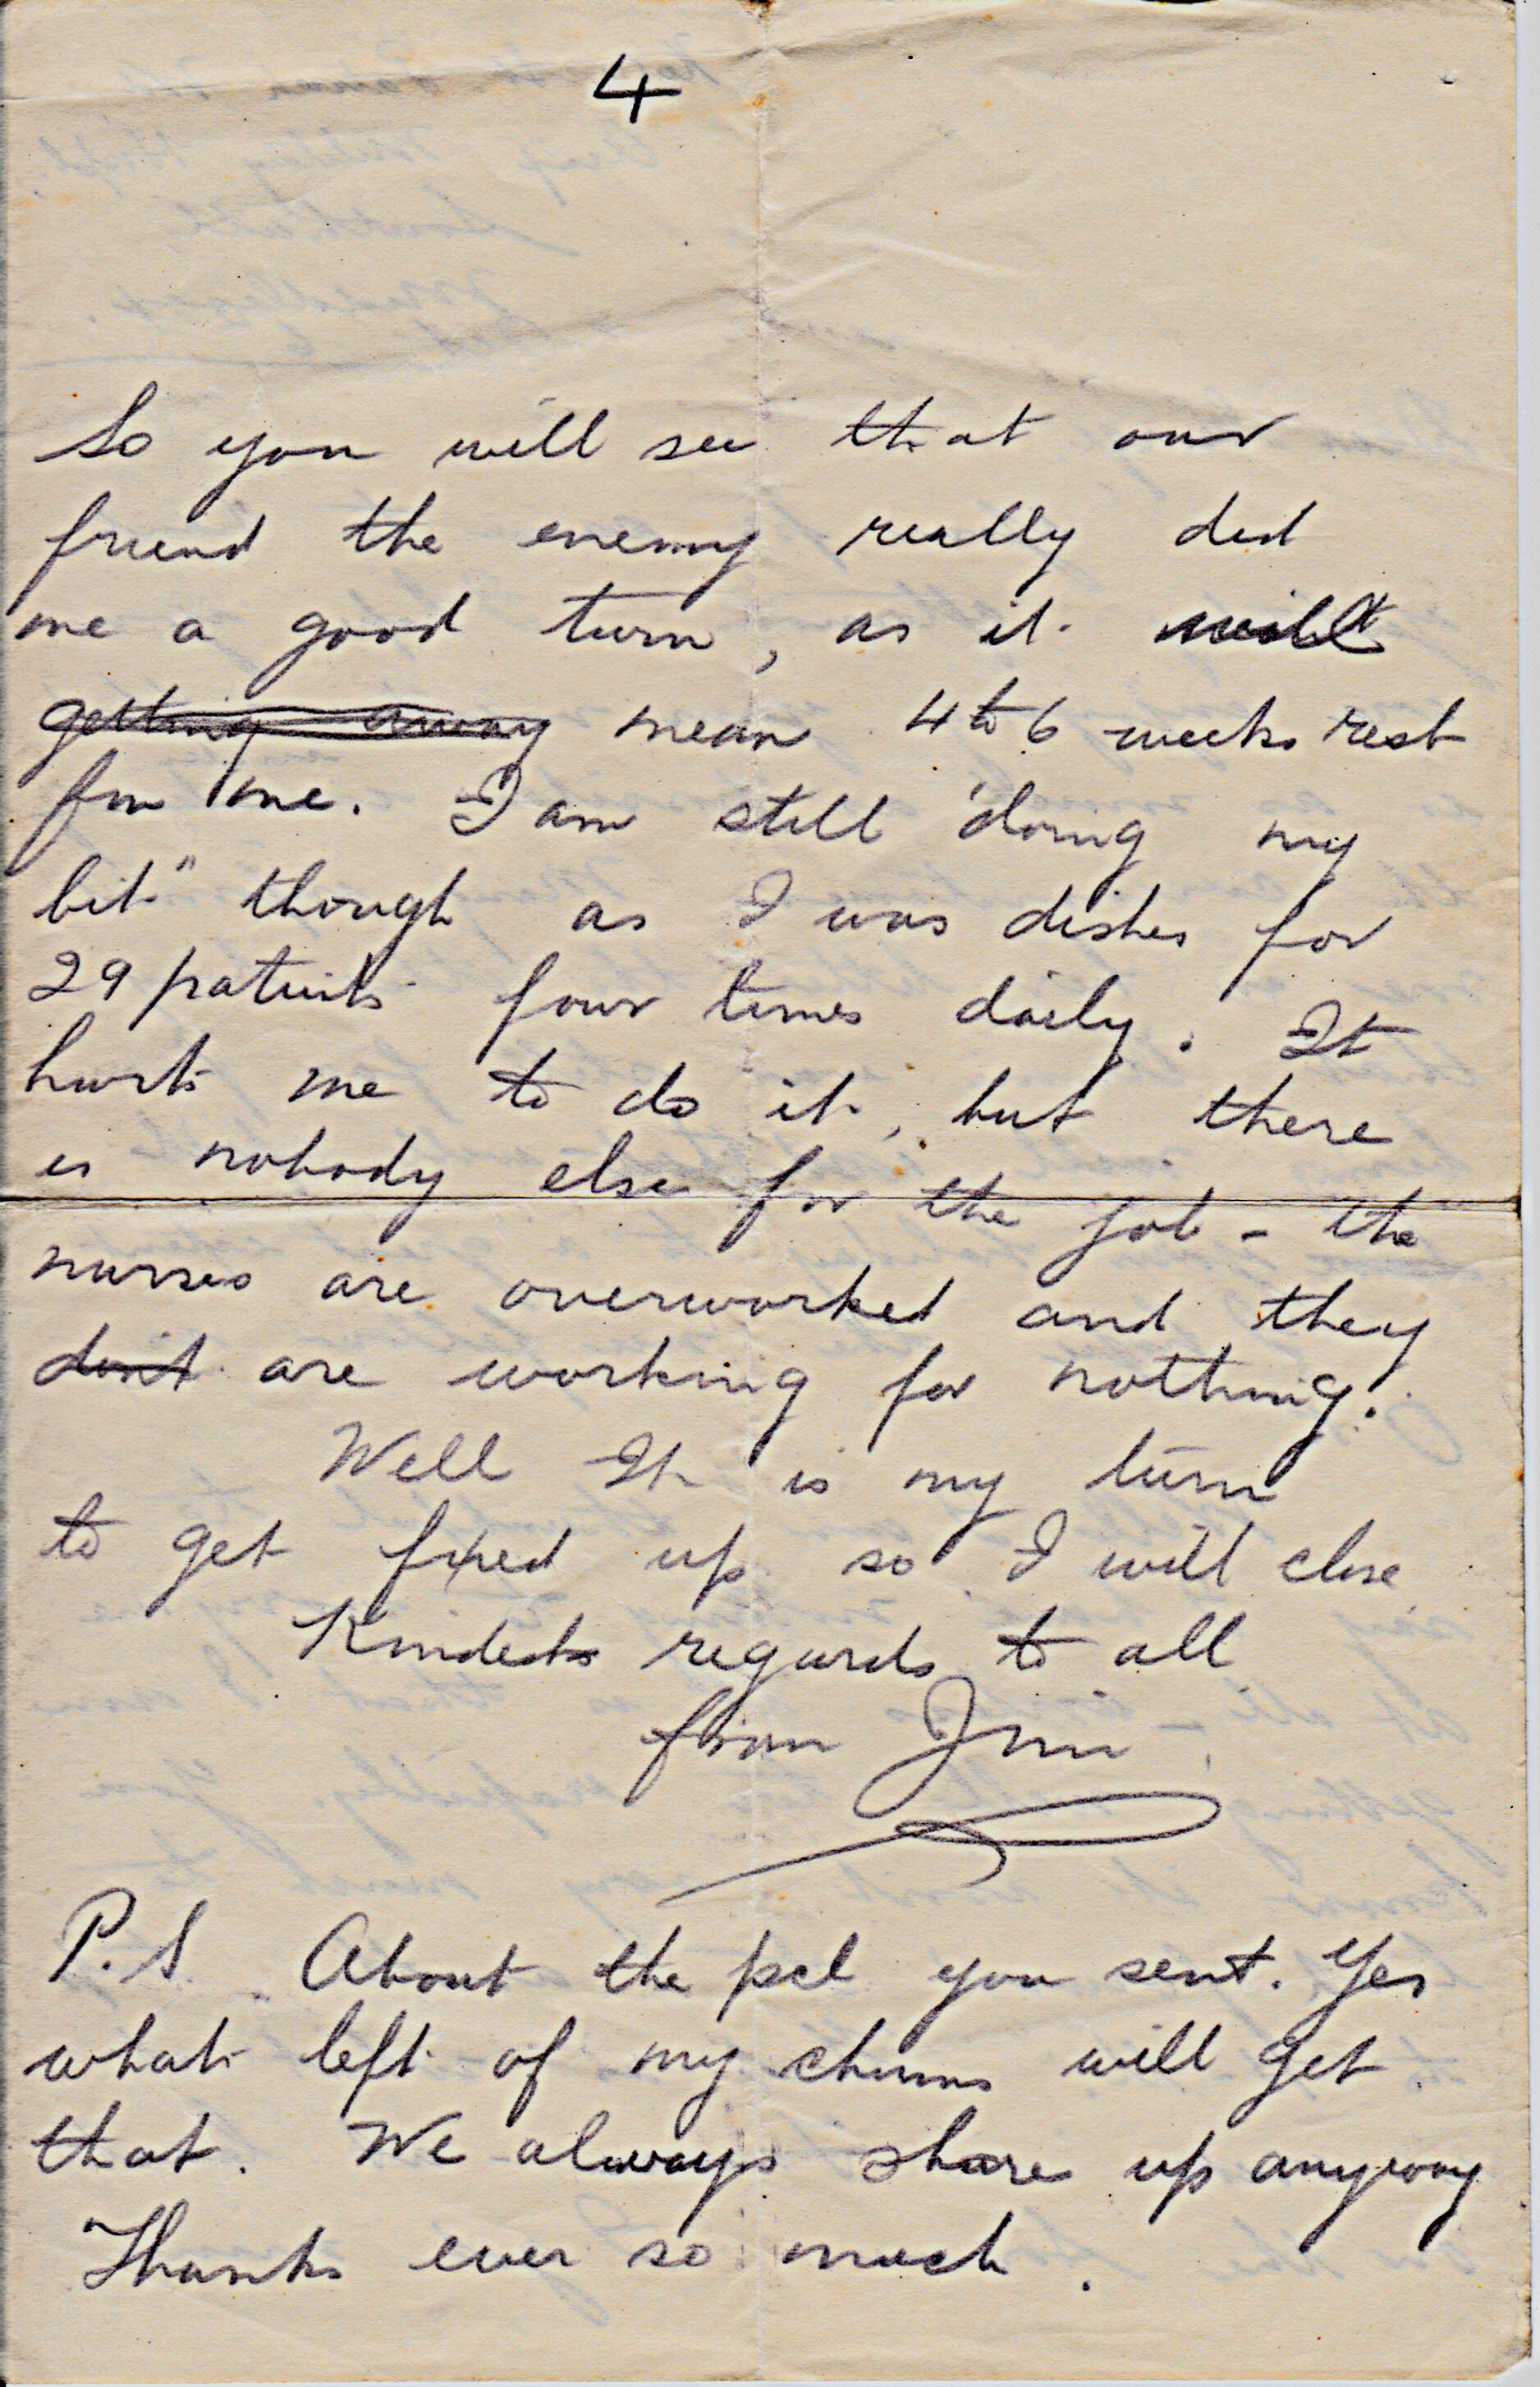 4
So you will see that our
friend the enemy really did
me a good turn, as it will
getting away mean 4 to 6 weeks rest
for me. I am still 'doing my
bit" though as I was dishes for
29 patients four times daily. It
hurts me to do it, but there
is nobody else for the job - the
nurses are overworked and they
don't are working for nothing.
Well It is my turn
to get fixed up so I will close
Kindest regards to all
from Jim.
P.S. About the pcl you sent. Yes
what left of my chums will get
that. We always share up anyway
Thanks ever so much.